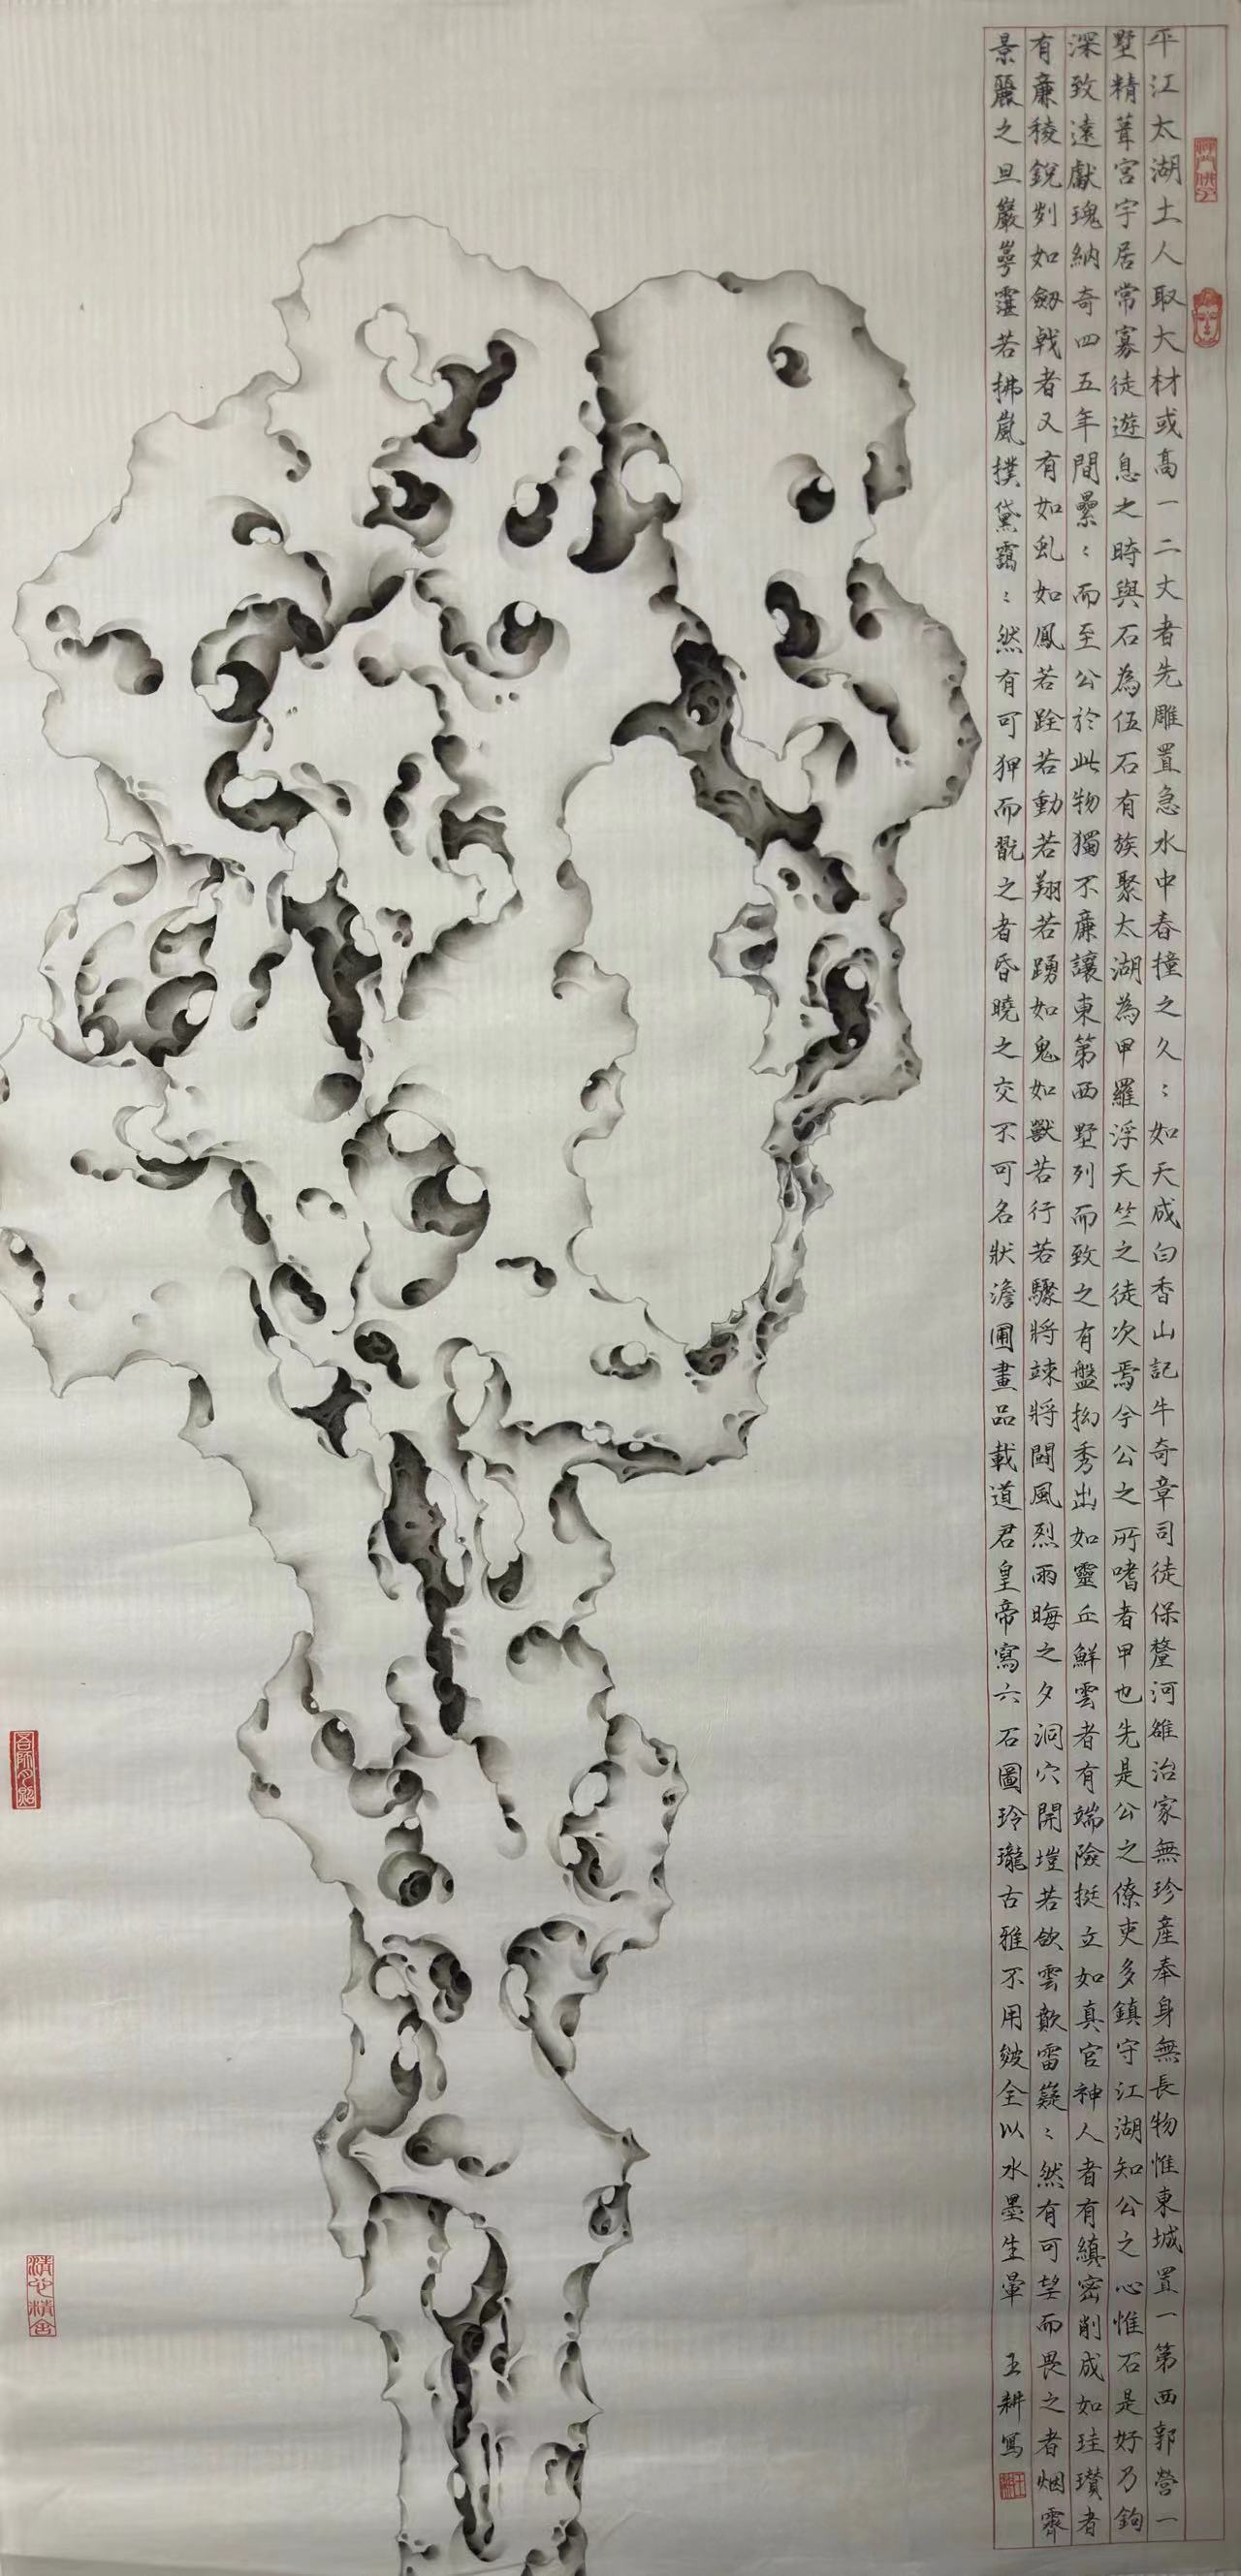 平江太湖土人取大材或高一二丈者先雕置急水中舂撞之久〻如天成白香山記牛奇章司徒保釐河雒治家無珍產奉身無長物惟東城置一第西郭營一
墅精葺宮宇居常寡徒遊息之時與石為伍石有族聚太湖為甲羅浮天竺之徒次焉今公之所嗜者甲也先是公之僚吏多鎮守江湖知公之心惟石是好乃鉤
深致遠獻瑰納奇四五年間纍〻而至公於此物獨不廉讓東第西墅列而致之有盤拗秀出如靈丘鮮雲者有端險挺立如真官神人者有縝密削成如珪瓚者
有廉稜銳劌如劒戟者又有如虬如鳳若跧若動若翔若踴如鬼如獸若行若驟將竦將鬪風烈雨晦之夕洞穴開塏若欱雲歕雷嶷〻然有可望而畏之者烟霽
景麗之旦巖㟧霮若拂嵐撲黛靄〻然有可狎而翫之者昏曉之交不可名狀澹圃畫品載道君皇帝寫六石圖玲瓏古雅不用皴全以水墨生暈 王耕寫
清心精舍